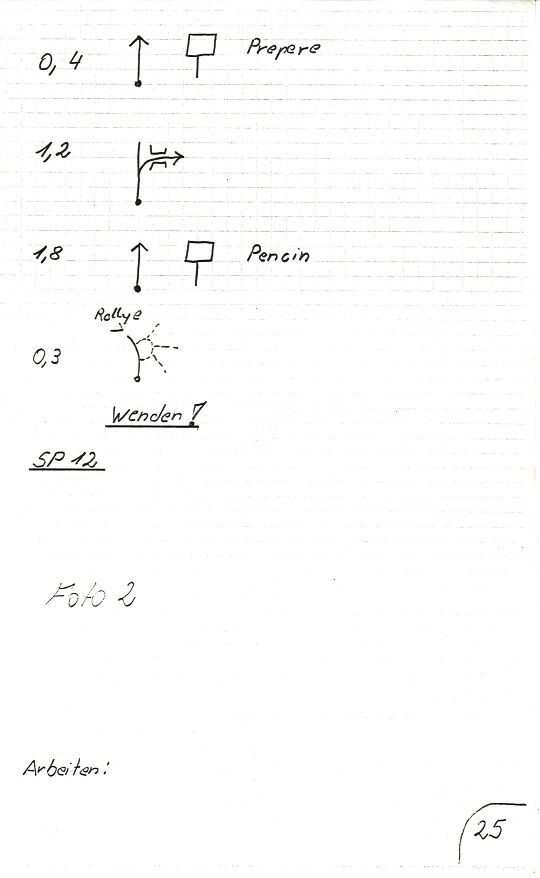 0,4 Prepere
1,2
1,8 Pencin
Rallye
0,3
Wenden!
SP 12
Foto 2
Arbeiten:
25